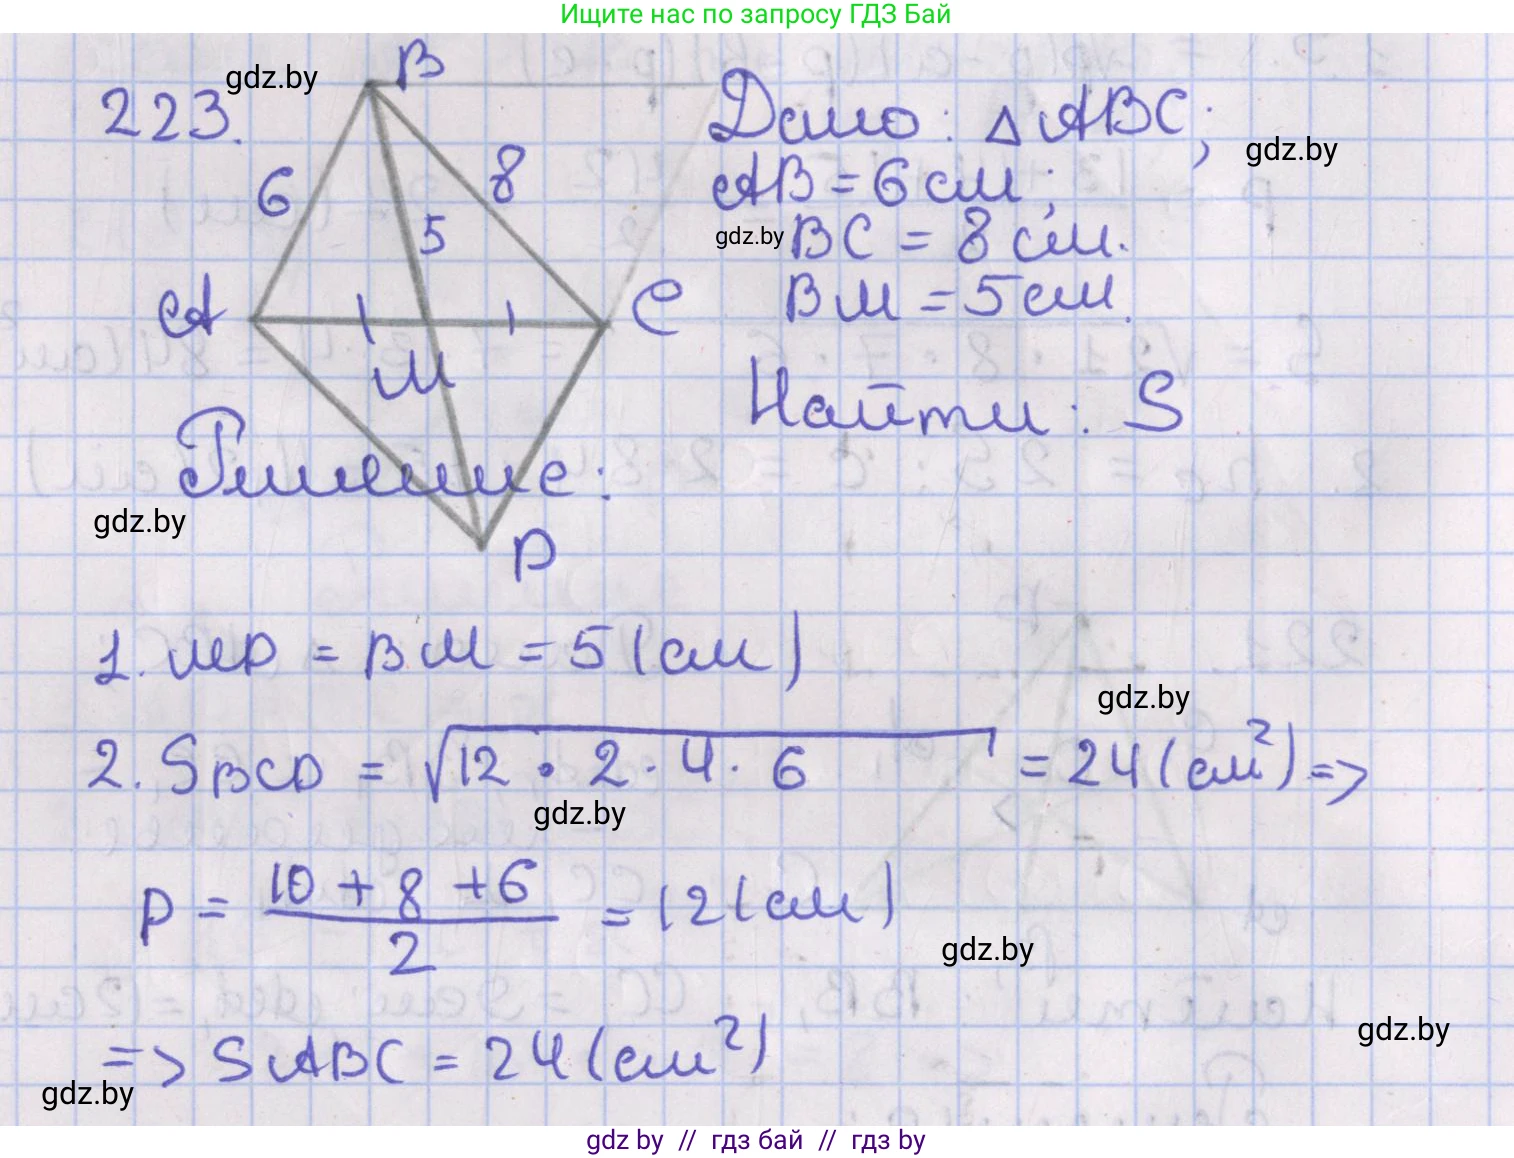 Ищите нас по запросу ГДЗ Бай
gdz.by
223.
B
6
8
5
A
C
M
D
Дано: △ABC;
gdz.by
AB = 6 см;
gdz.by
BC = 8 см.
BM = 5 см.
Найти: S
Решение:
gdz.by
1. MD = BM = 5 (см)
gdz.by
2. SBCD = √12 · 2 · 4 · 6 = 24 (см²) =>
gdz.by
p = 10 + 8 + 6 / 2 = 12 (см)
gdz.by
=> SABC = 24 (см²)
gdz.by
gdz.by
gdz by // гдз бай // гдз by